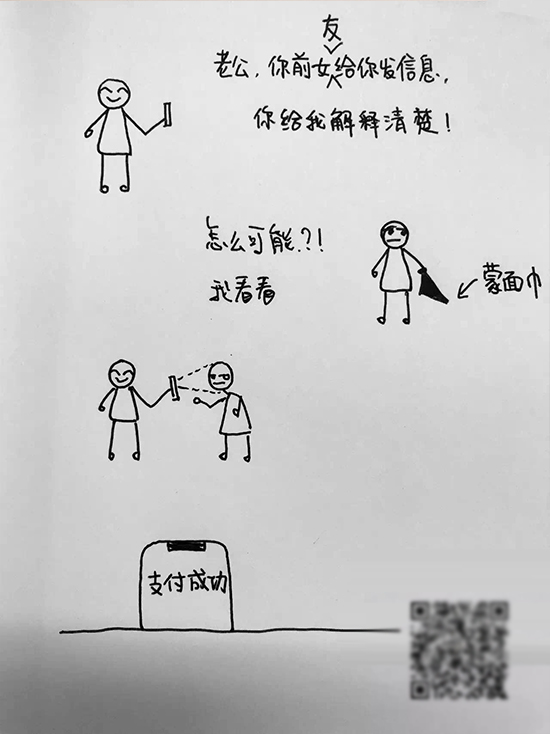 老公，你前女友给你发信息，
你给我解释清楚！
怎么可能？！
我看看
蒙面巾
支付成功